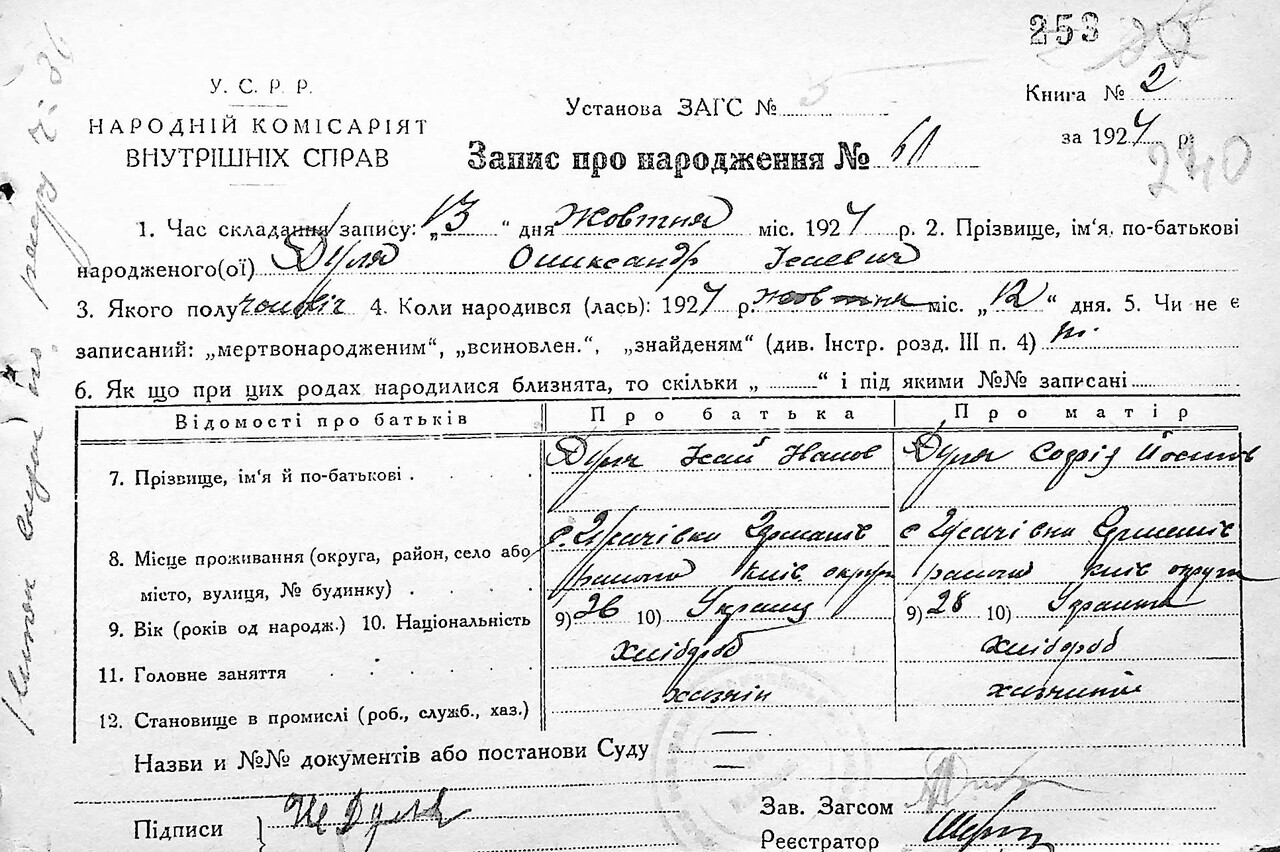 253
У. С. Р. Р.
НАРОДНІЙ КОМІСАРІЯТ
ВНУТРІШНІХ СПРАВ
Установа ЗАГС №
Книга № 2
за 1924 р.
240
Запис про народження № 60
1. Час складання запису: „13“ дня Жовтня міс. 1924 р. 2. Прізвище, ім'я, по-батькові
народженого(ої) Дуля Олександр Ісаевич
3. Якого полу чоловіч 4. Коли народився (лась): 1924 р. жовтня міс. „12“ дня. 5. Чи не є
записаний: „мертвонародженим“, „всиновлен.“, „знайденям“ (див. Інстр. розд. III п. 4) ні.
6. Як що при цих родах народилися близнята, то скільки „ “ і під якими №№ записані
Відомості про батьків Про батька Про матір
7. Прізвище, ім'я й по-батькові Дуля Ісай Дуля Софія
8. Місце проживання (округа, район, село або
місто, вулиця, № будинку) району Київ округи району Київ округи
9. Вік (років од народж.) 10. Національність 9) 26 10) Українц 9) 28 10) Українка
11. Головне заняття хлібороб хлібороб
12. Становище в промислі (роб., служб., хаз.) хазяін
Назви и №№ документів або постанови Суду
Підписи Дуля
Зав. Загсом
Реестратор